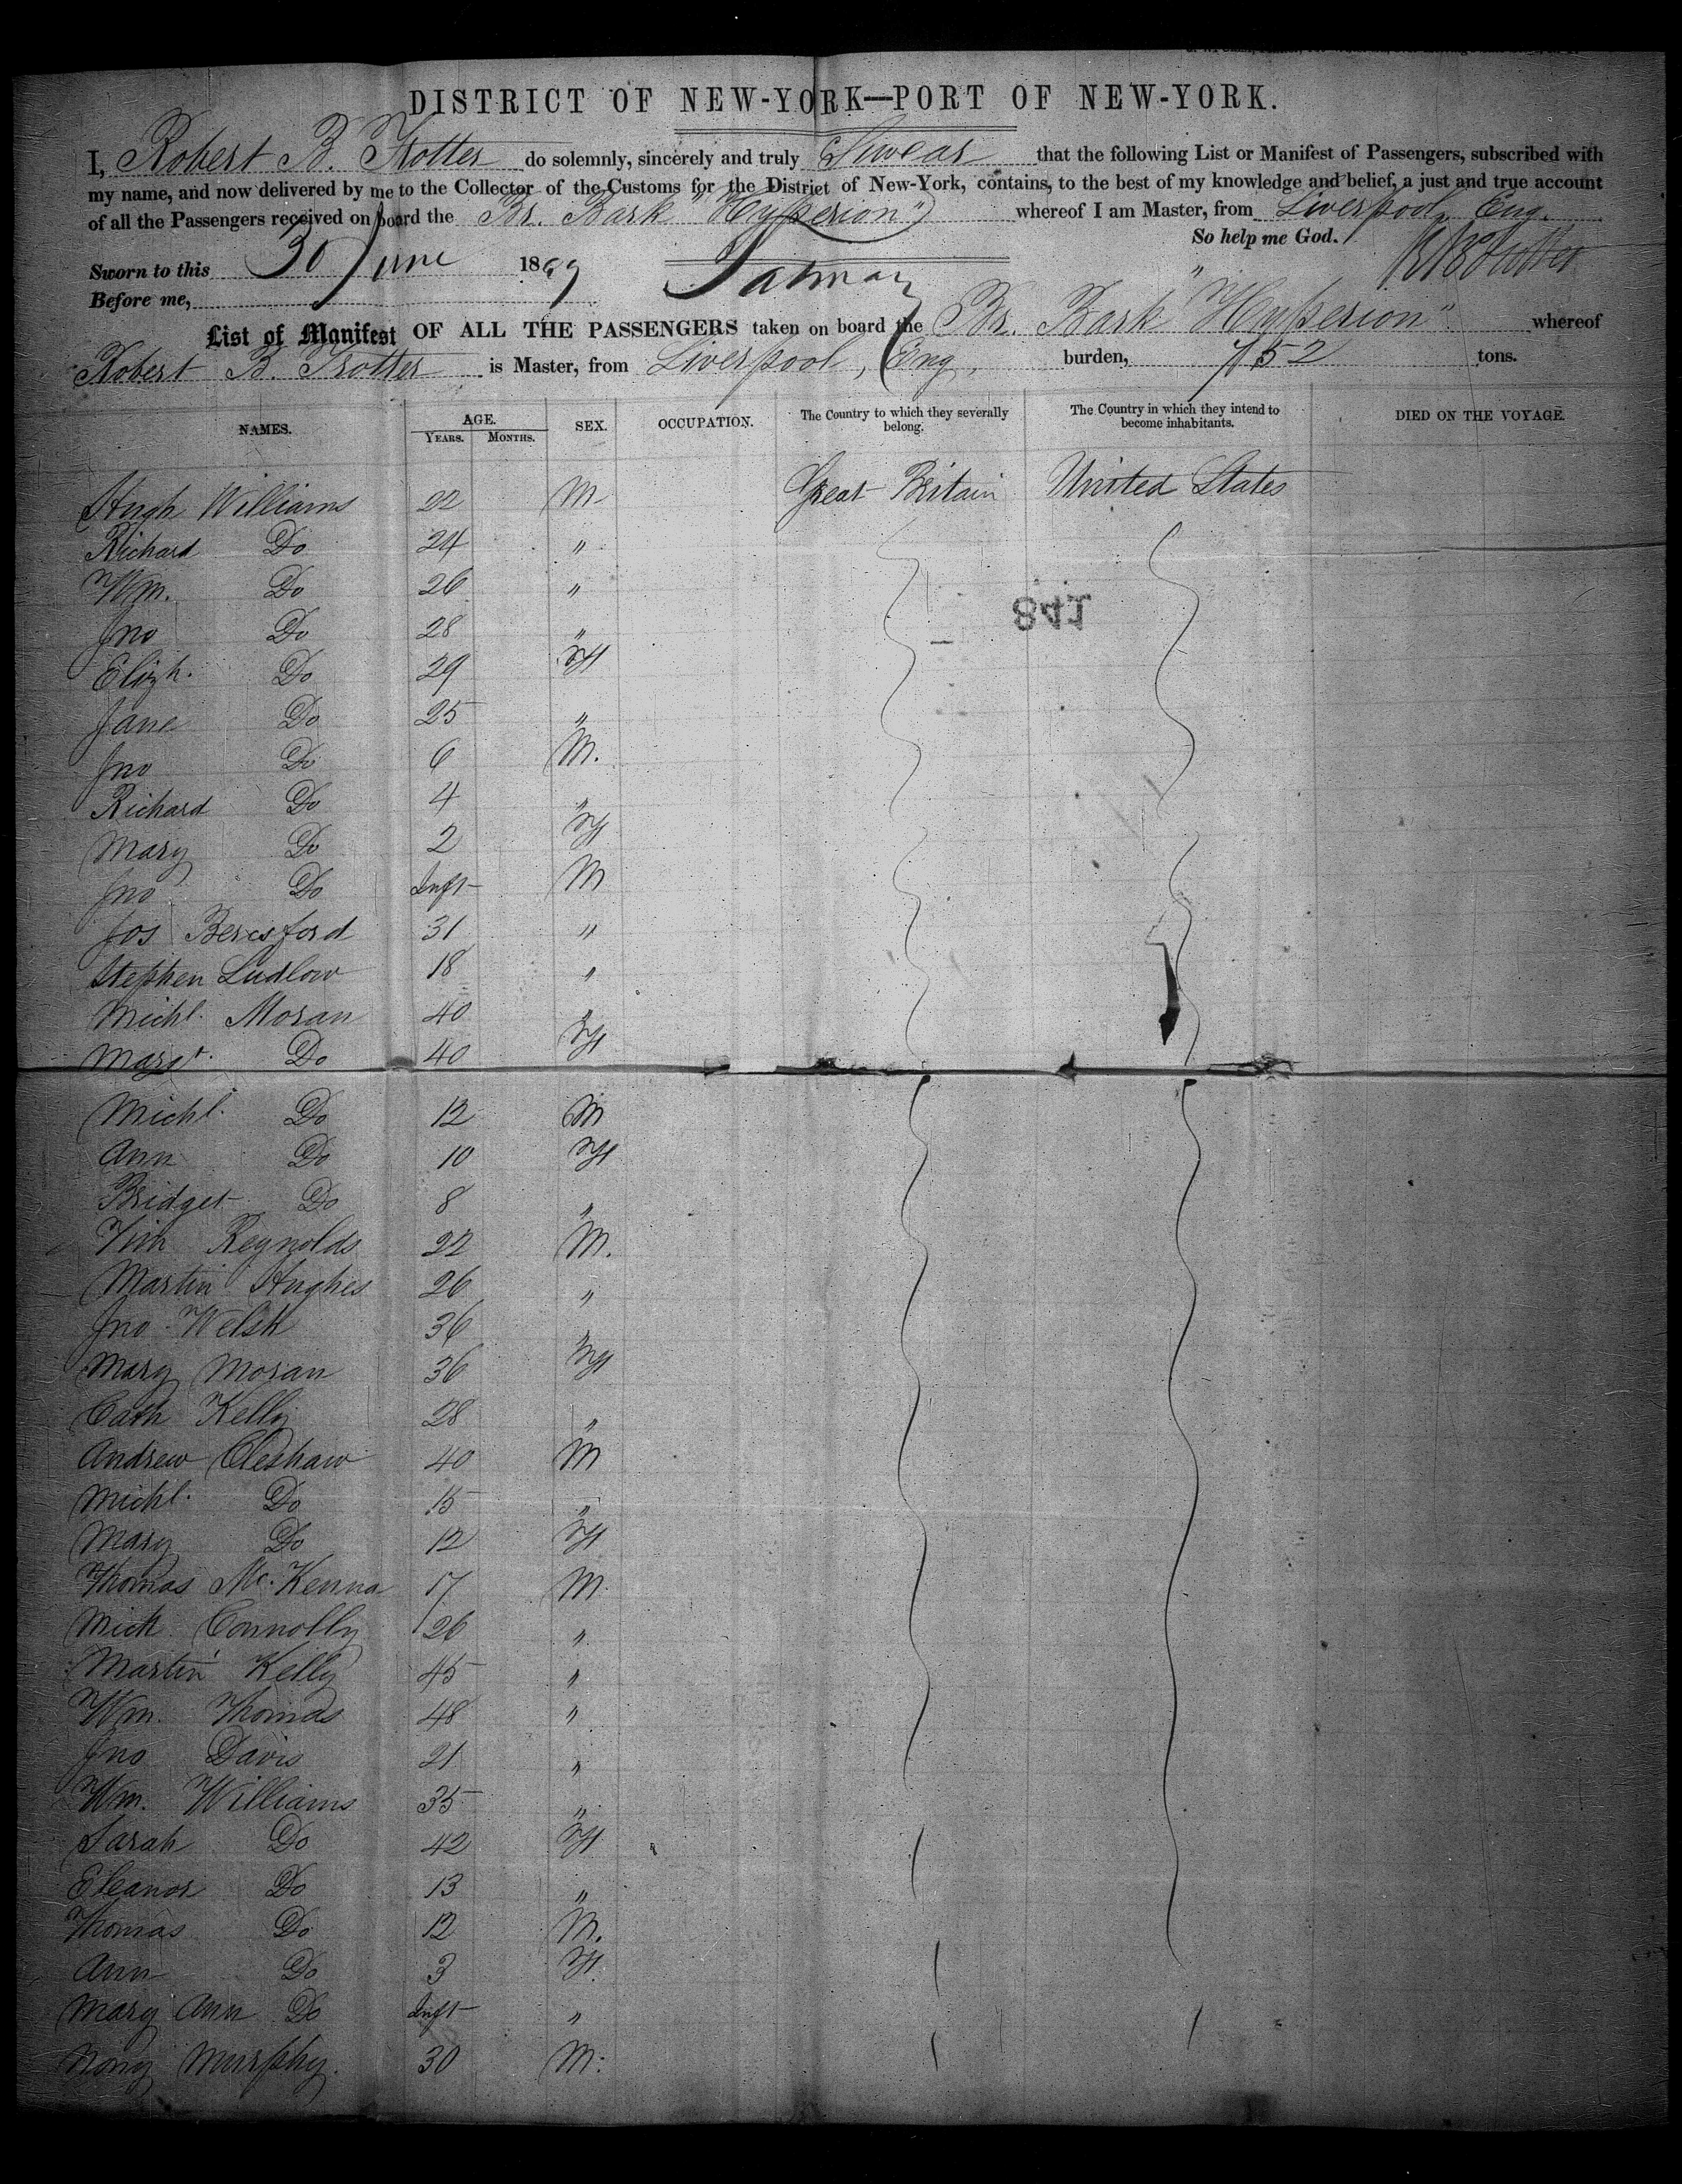 DISTRICT OF NEW-YORK—PORT OF NEW-YORK.
I, Robert B. Trotter do solemnly, sincerely and truly Swear that the following List or Manifest of Passengers, subscribed with
my name, and now delivered by me to the Collector of the Customs for the District of New-York, contains, to the best of my knowledge and belief, a just and true account
of all the Passengers received on board the Br. Bark "Hyperion" whereof I am Master, from Liverpool, Eng.
So help me God.
Sworn to this 30 June 18
Before me,
List of Manifest OF ALL THE PASSENGERS taken on board the Br. Bark "Hyperion" whereof
Robert B. Trotter is Master, from Liverpool, Eng, burden, 752 tons.
NAMES. AGE. YEARS. MONTHS. SEX. OCCUPATION. The Country to which they severally belong. The Country in which they intend to become inhabitants. DIED ON THE VOYAGE.
Hugh Williams 22 M Great Britain United States
Richard Do 24 "
Wm. Do 26 "
841
Jno Do 28 "
Elizh. Do 29 F
Jane Do 25 "
Jno Do 6 M.
Richard Do 4 "
Mary Do 2 F
Jno Do Inft M
Jos Beresford 31 "
Stephen Ludlow 18 "
Michl. Moran 40 "
Margt. Do 40 F
Michl. Do 12 M
Ann Do 10 F
Bridget Do 8 "
Tim Reynolds 22 M.
Martin Hughes 26 "
Jno Welsh 36 "
Mary Moran 36 F
Cath Kelly 28 "
Andrew Cleshaw 40 M
Michl. Do 15 "
Mary Do 12 F
Thomas Mc.Kenna 17 M.
Mich Connolly 26 "
Martin Kelly 45 "
Wm. Thomas 48 "
Jno Davis 21 "
Wm. Williams 35 "
Sarah Do 42 F
Eleanor Do 13 "
Thomas Do 12 M.
Ann Do 3 F.
Mary Ann Do Inft "
Murphy. 30 M.